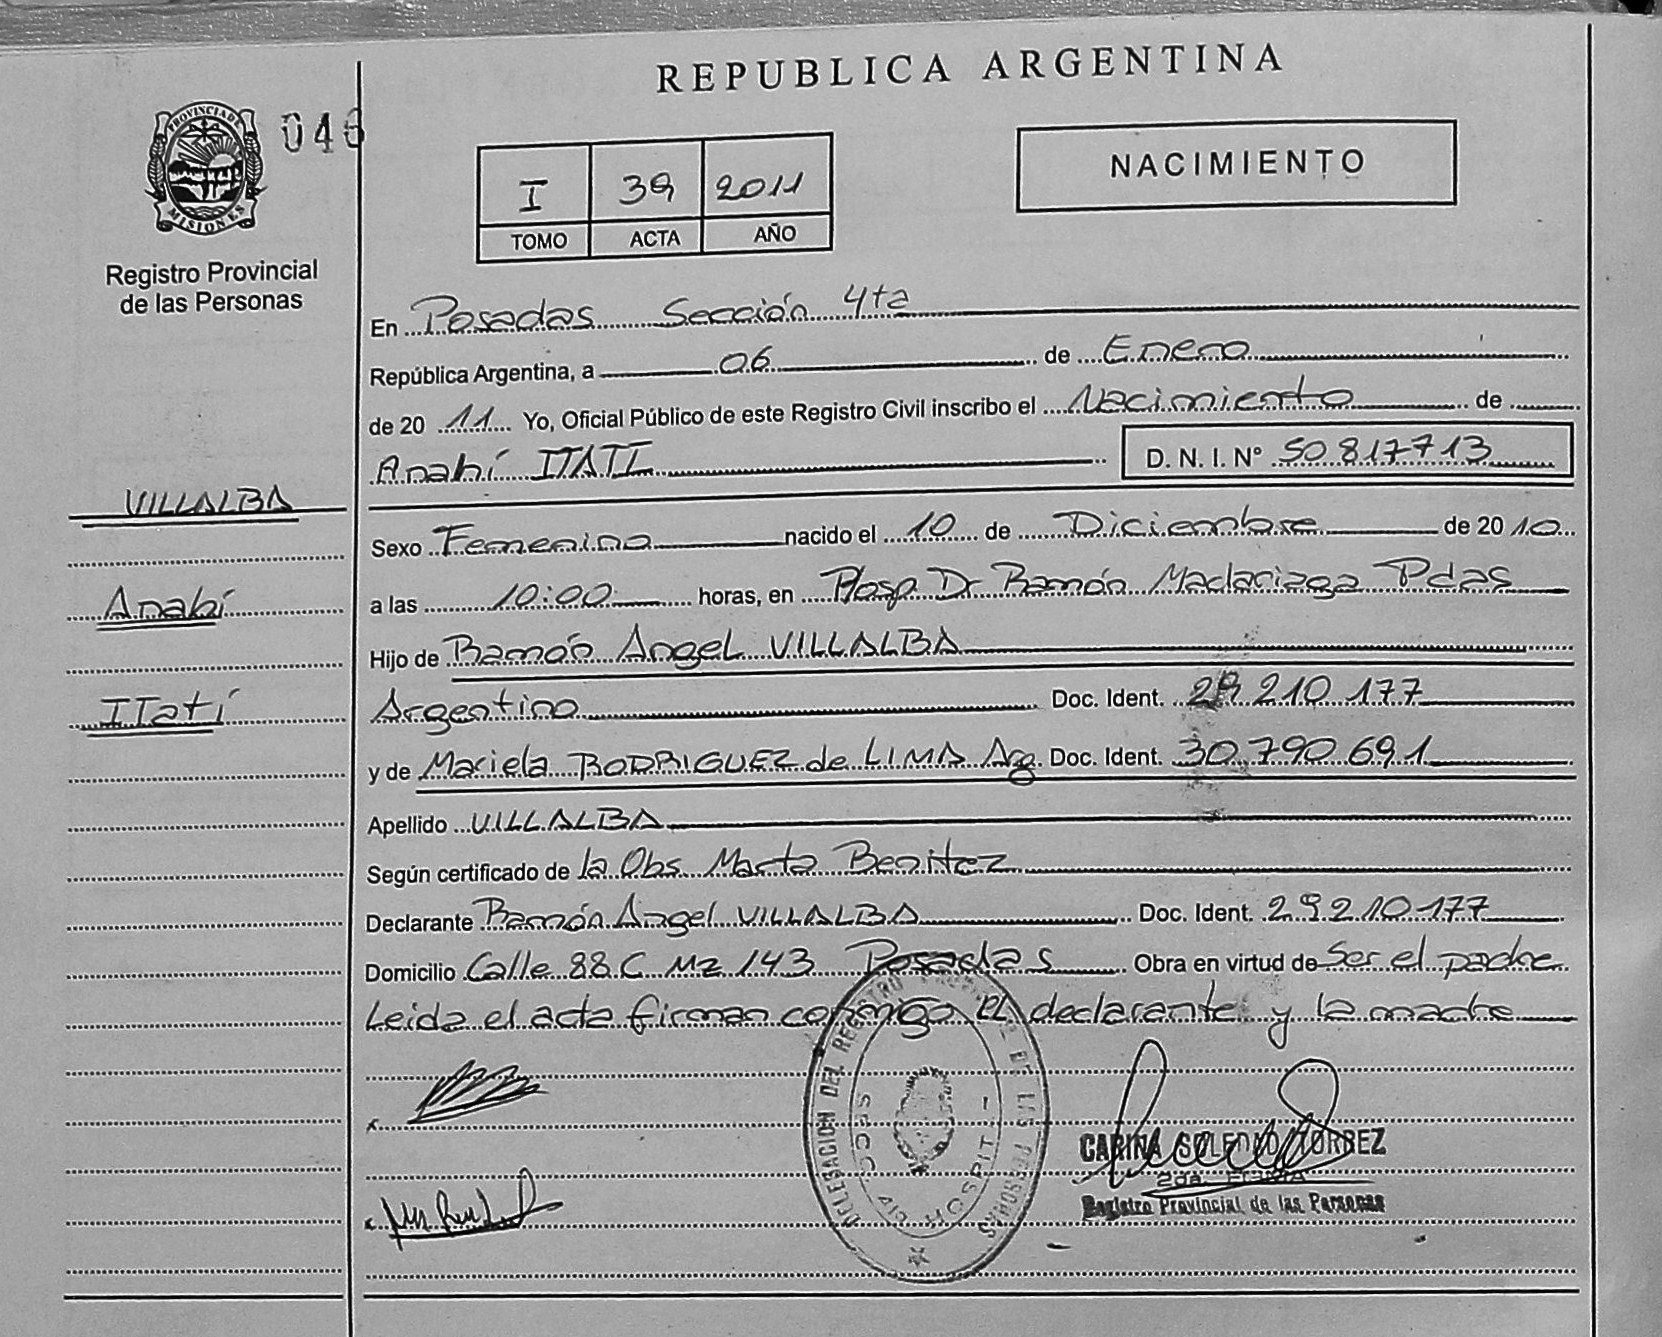 REPUBLICA ARGENTINA
PROVINCIA DE
MISIONES
046
Registro Provincial
de las Personas
I 39 2011
TOMO ACTA AÑO
NACIMIENTO
En Posadas Sección 4ta
República Argentina, a 06 de Enero
de 2011 Yo, Oficial Público de este Registro Civil inscribo el Nacimiento de
Anahí ITATI D. N. I. Nº 50.817.713
VILLALBA
Anahí
ITatí
Sexo Femenino nacido el 10 de Diciembre de 2010
a las 10:00 horas, en Hosp. Dr Ramón Madariaga Pdas
Hijo de Ramón Angel VILLALBA
Argentino Doc. Ident. 29.210.177
y de Mariela RODRIGUEZ de LIMA Arg. Doc. Ident. 30.790.691
Apellido VILLALBA
Según certificado de la Obs Marta Benitez
Declarante Ramón Angel VILLALBA Doc. Ident. 29.210.177
Domicilio Calle 88 C Mz 143 Posadas Obra en virtud de Ser el padre
Leida el acta firman conmigo el declarante y la madre
DELEGACION DEL REGISTRO PROVINCIAL DE LAS PERSONAS
SECC. 4ta HOSPIT.
CARINA SOLEDAD TORREZ
2da. FIRMA
Registro Provincial de las Personas